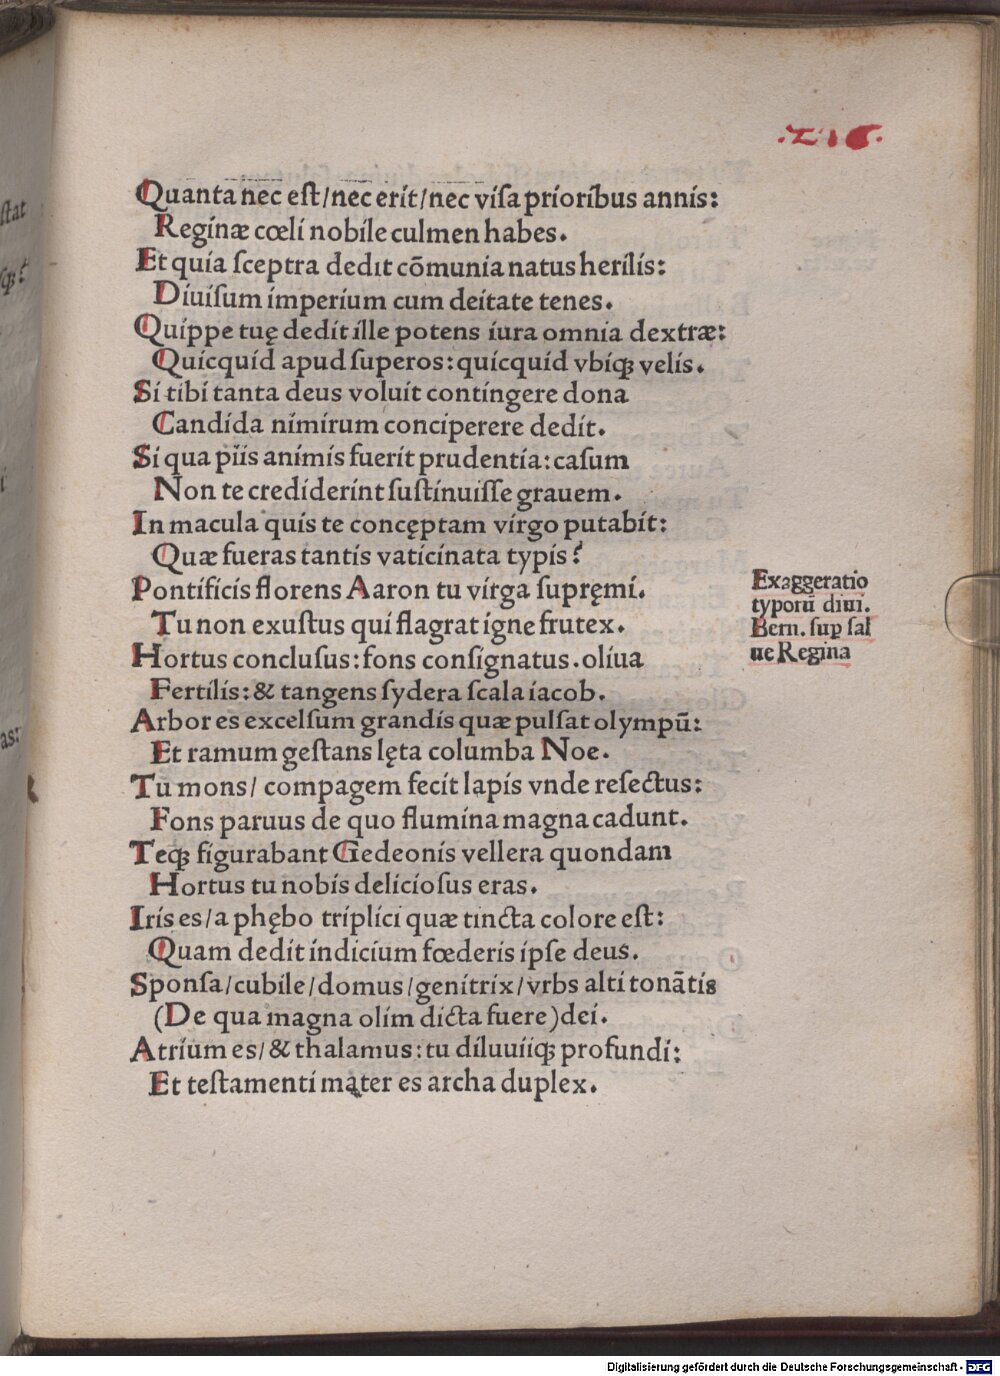 .216.
Quanta nec eſt/nec erit/nec viſa prioribus annis:
Reginæ cœli nobile culmen habes.
Et quia ſceptra dedit cõmunia natus herilis:
Diuiſum imperium cum deitate tenes.
Quippe tuę dedit ille potens iura omnia dextræ:
Quicquid apud ſuperos: quicquid vbiqꝫ velis.
Si tibi tanta deus voluit contingere dona
Candida nimirum conciperere dedit.
Si qua piis animis fuerit prudentia: caſum
Non te crediderint ſuſtinuiſſe grauem.
In macula quis te concęptam virgo putabit:
Quæ fueras tantis vaticinata typis?
Pontificis florens Aaron tu virga ſupręmi.
Tu non exuſtus qui flagrat igne frutex.
Hortus concluſus: fons conſignatus. oliua
Fertilis: & tangens ſydera ſcala iacob.
Arbor es excelſum grandis quæ pulſat olympū:
Et ramum geſtans lęta columba Noe.
Tu mons/ compagem fecit lapis vnde reſectus:
Fons paruus de quo flumina magna cadunt.
Teqꝫ figurabant Gedeonis vellera quondam
Hortus tu nobis delicioſus eras.
Iris es/a phębo triplici quæ tincta colore eſt:
Quam dedit indicium fœderis ipſe deus.
Sponſa/cubile/domus/genitrix/vrbs alti tonãtis
(De qua magna olim dicta fuere)dei.
Atrium es/& thalamus: tu diluuiiqꝫ profundi:
Et teſtamenti mater es archa duplex.
Exaggeratio
typorū diui.
Bern. ſup ſal
ue Regina
ſtat
ſqꝫ?
i
as:
Digitalisierung gefördert durch die Deutsche Forschungsgemeinschaft - DFG